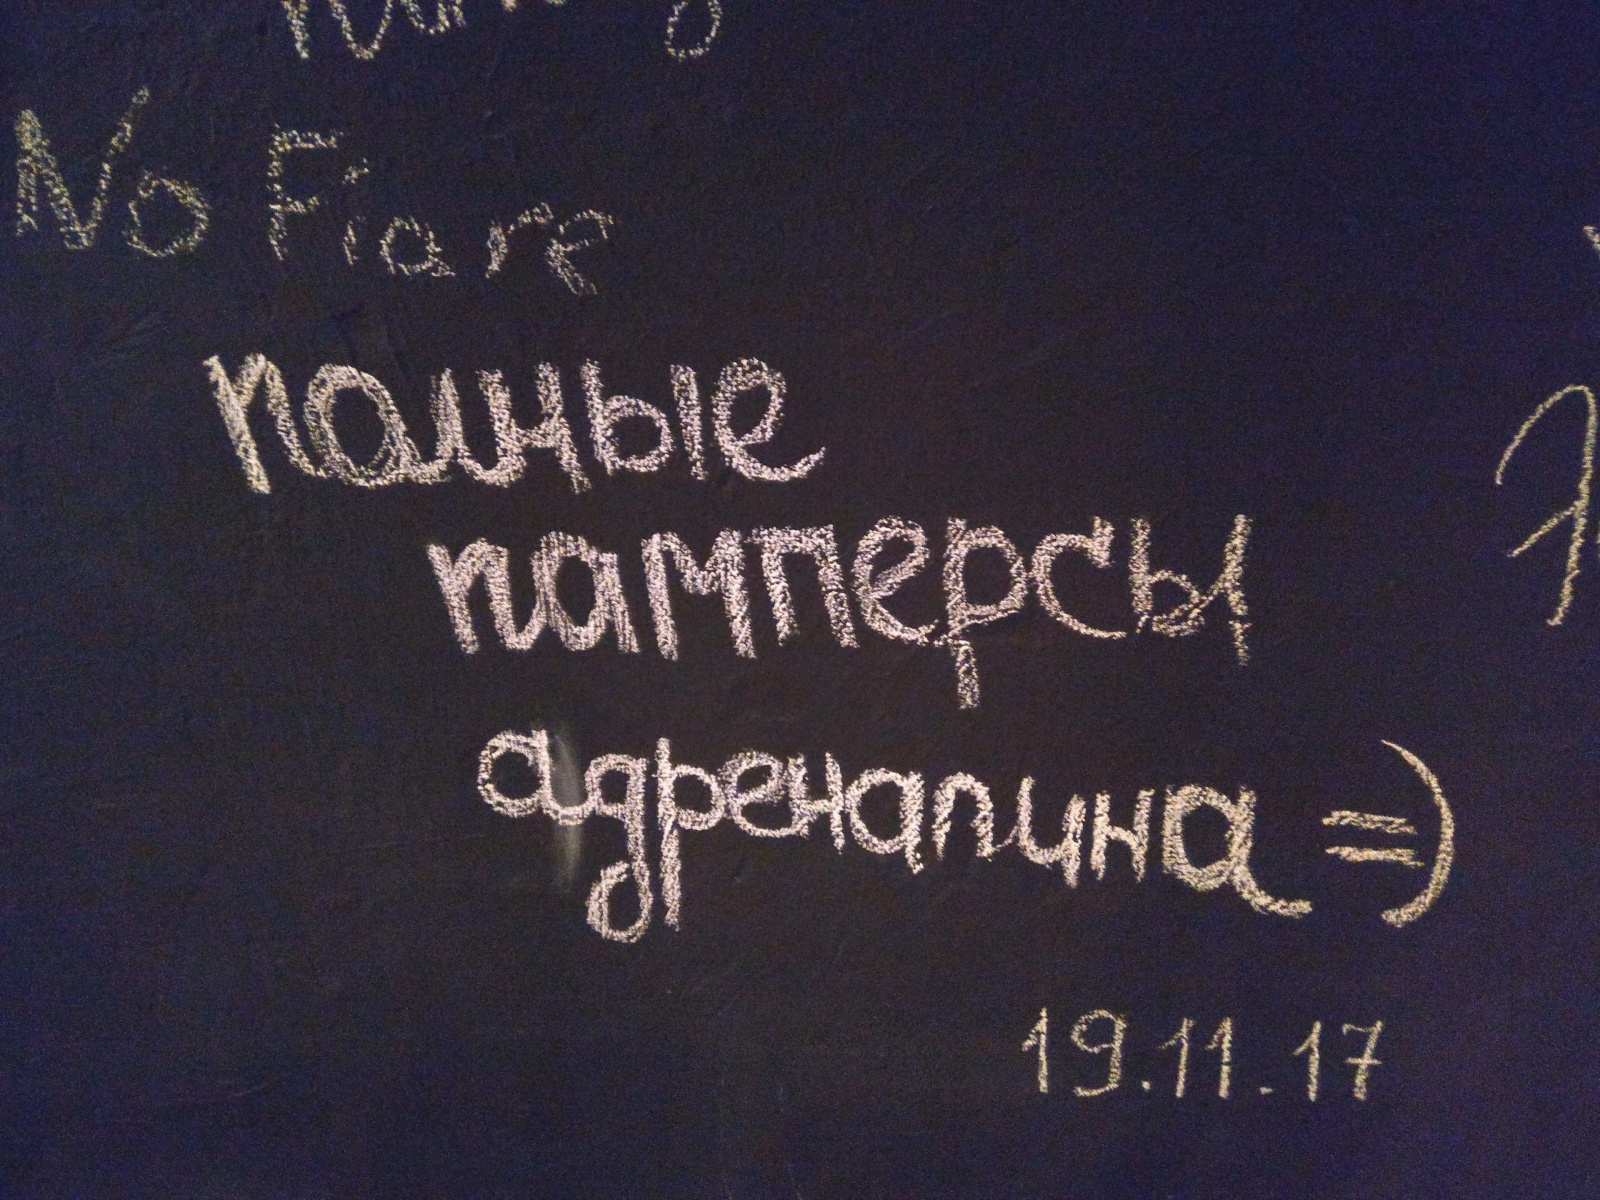 No Fiare
полные
памперсы
адреналина =)
19.11.17